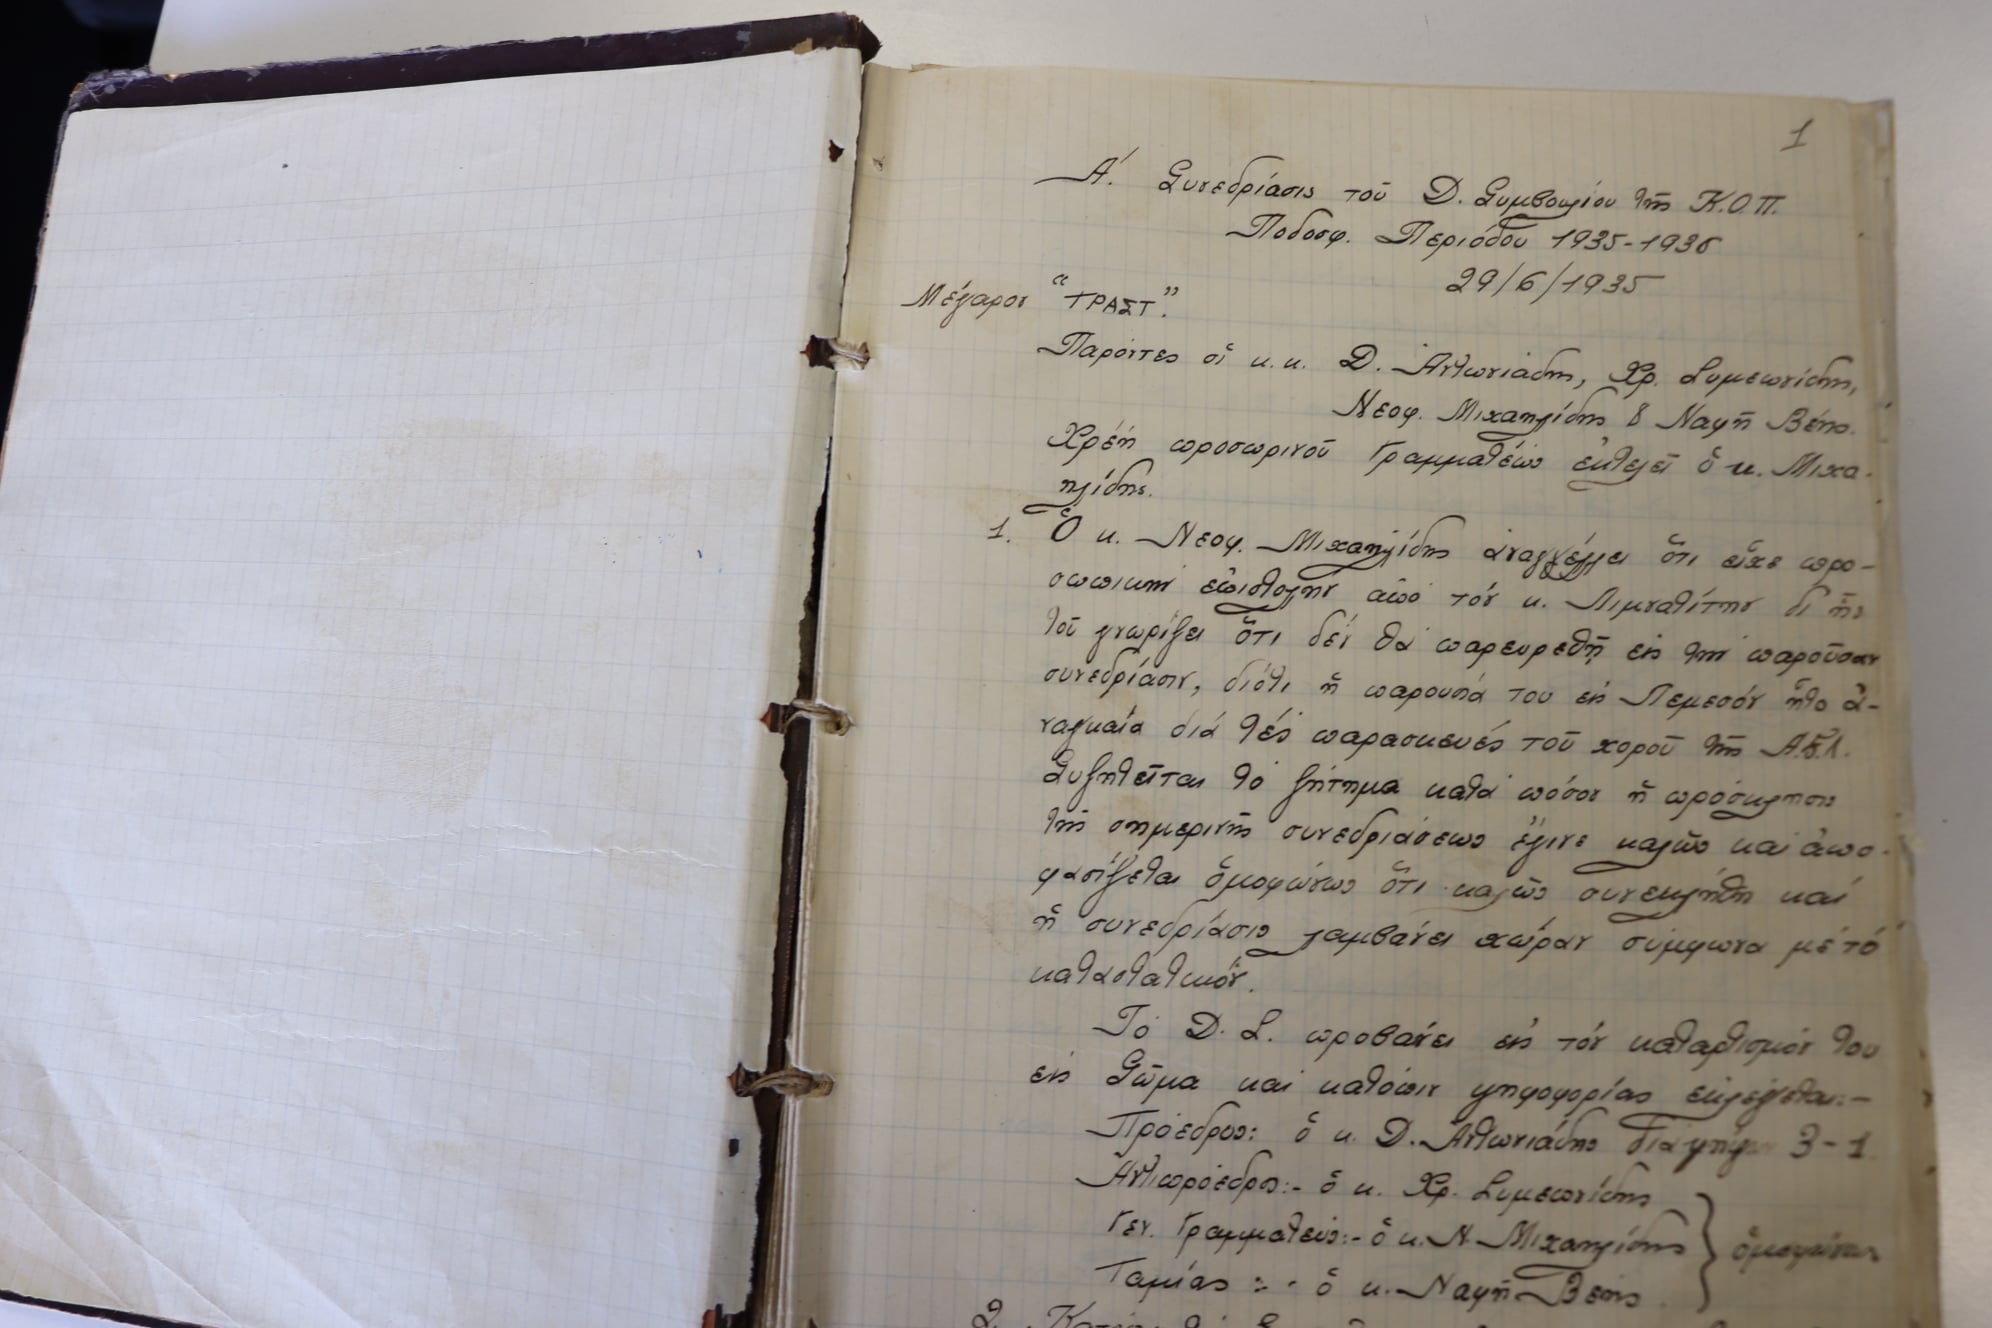 1
Α΄. Συνεδρίασις τοῦ Δ. Συμβουλίου τῆς Κ.Ο.Π.
Ποδοσφ. Περιόδου 1935-1936
29/6/1935
Μέγαρον "ΤΡΑΣΤ".
Παρόντες οἱ κ.κ. Δ. Ἀντωνιάδης, Χρ. Συμεωνίδης,
Νεοφ. Μιχαηλίδης & Ναφῆ Βέης.
Χρέη προσωρινοῦ Γραμματέως ἐκτελεῖ ὁ κ. Μιχα-
ηλίδης.
1. Ὁ κ. Νεοφ. Μιχαηλίδης ἀναγγέλλει ὅτι εἶχε προ-
σωπικήν ἐπιστολήν ἀπό τόν κ. Λιμνατίτην δι' ἧς
τοῦ γνωρίζει ὅτι δέν θά παρευρεθῇ εἰς τήν παροῦσαν
συνεδρίασιν, διότι ἡ παρουσία του εἰς Λεμεσόν ἦτο ἀ-
ναγκαία διά τές παρασκευές τοῦ χοροῦ τῆς Α.Ε.Λ.
Συζητεῖται τό ζήτημα κατά πόσον ἡ πρόσκλησις
τῆς σημερινῆς συνεδριάσεως ἔγινε καλῶς καί ἀπο-
φασίζεται ὁμοφώνως ὅτι καλῶς συνεκλήθη καί
ἡ συνεδρίασις λαμβάνει χώραν σύμφωνα μέ τό
καταστατικόν.
Τό Δ. Σ. προβαίνει εἰς τόν καταρτισμόν του
εἰς Σῶμα καί κατόπιν ψηφοφορίας ἐκλέγεται:-
Πρόεδρος: ὁ κ. Δ. Ἀντωνιάδης διά ψήφων 3-1
Ἀντιπρόεδρος:- ὁ κ. Χρ. Συμεωνίδης
Γεν. Γραμματεύς:- ὁ κ. Ν. Μιχαηλίδης } ὁμοφώνως
Ταμίας :- ὁ κ. Ναφῆ Βέης
2.